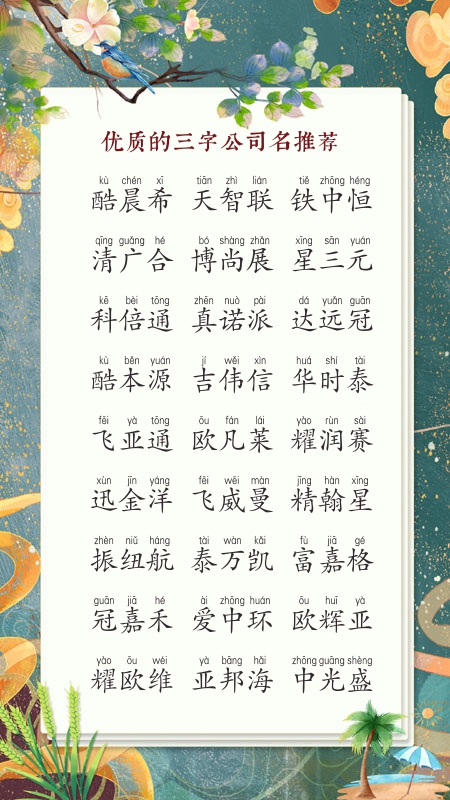 优质的三字公司名推荐
kù chén xī tiān zhì lián tiě zhōng héng
酷晨希 天智联 铁中恒
qīng guǎng hé bó shàng zhǎn xīng sān yuán
清广合 博尚展 星三元
kē bèi tōng zhēn nuò pài dá yuǎn guān
科倍通 真诺派 达远冠
kù běn yuán jí wěi xìn huá shí tài
酷本源 吉伟信 华时泰
fēi yà tōng ōu fán lái yào rùn sài
飞亚通 欧凡莱 耀润赛
xùn jīn yáng fēi wēi màn jīng hàn xīng
迅金洋 飞威曼 精翰星
zhèn niǔ háng tài wàn kǎi fù jiā gé
振纽航 泰万凯 富嘉格
guān jiā hé ài zhōng huán ōu huī yà
冠嘉禾 爱中环 欧辉亚
yào ōu wéi yà bāng hǎi zhōng guāng shèng
耀欧维 亚邦海 中光盛